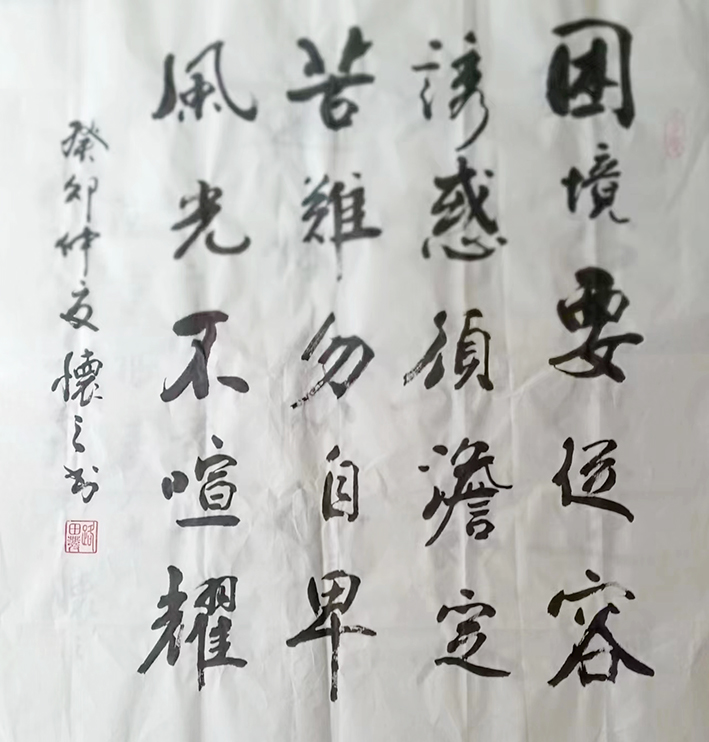 困境要從容
誘惑須澹定
苦難勿自卑
風光不喧耀
癸卯仲夏懷之書